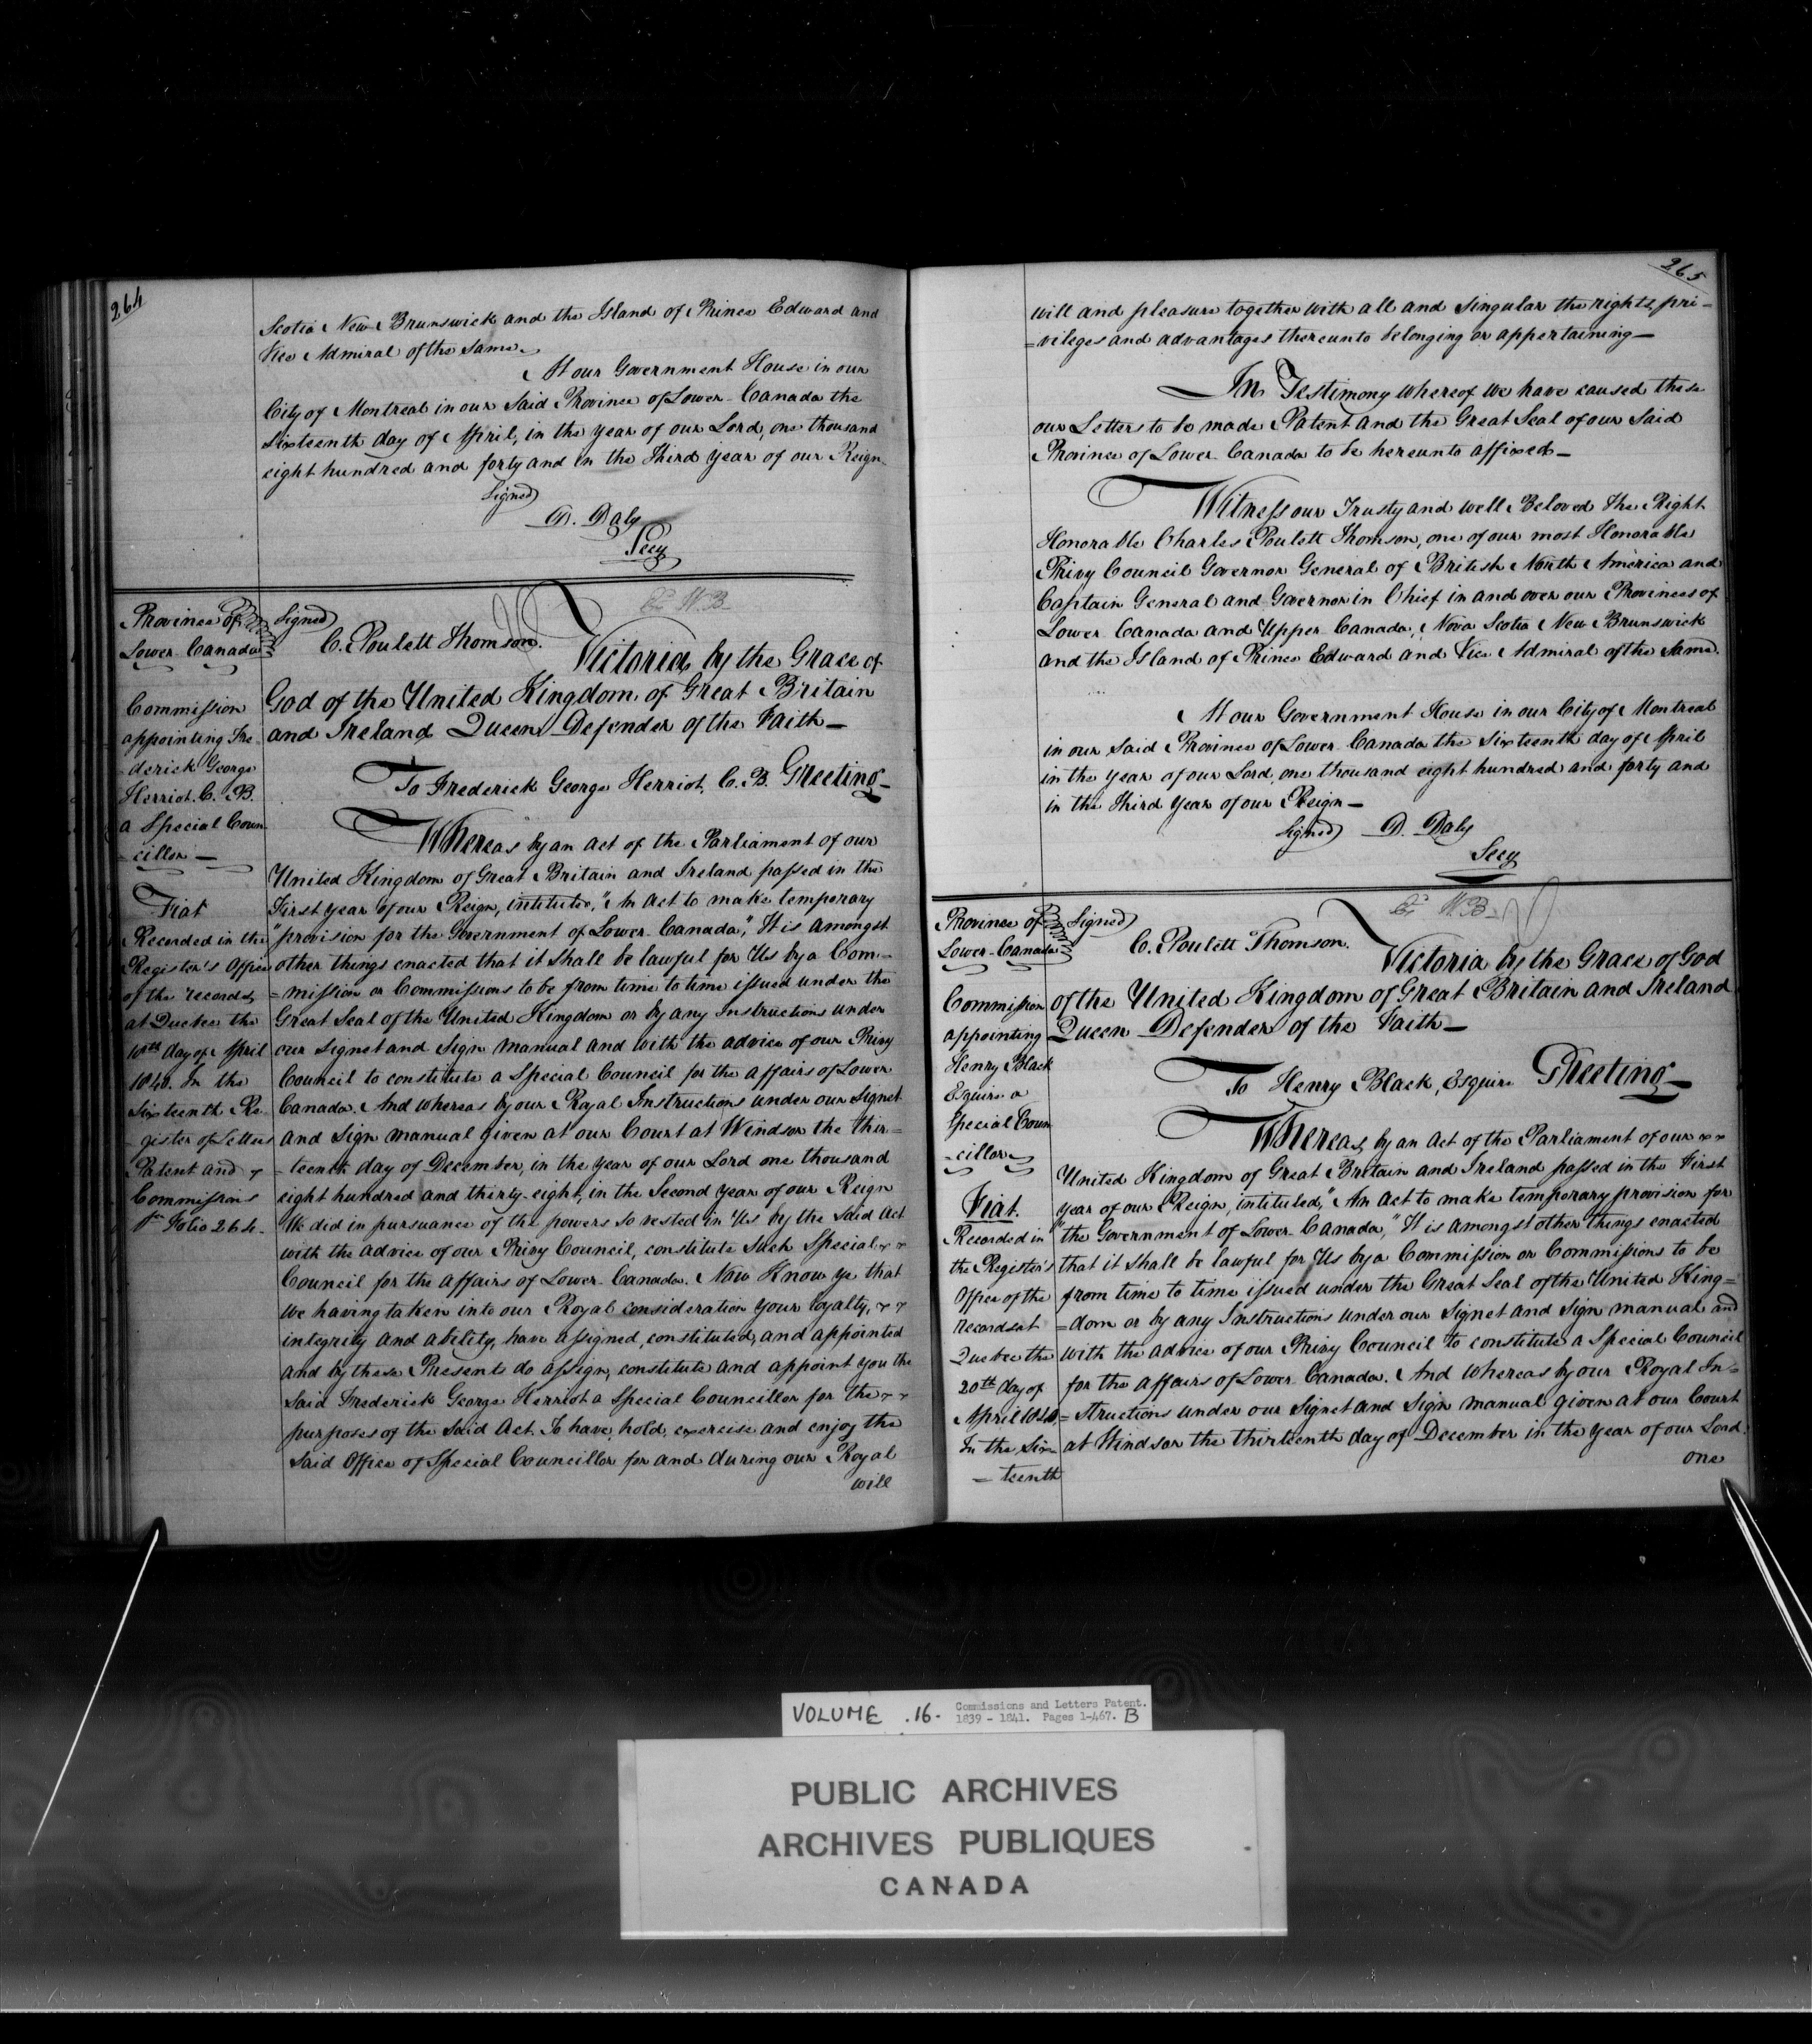 264
Scotia New Brunswick and the Island of Prince Edward and
Vice Admiral of the Same.
At our Government House in our
City of Montreal in our Said Province of Lower Canada the
Sixteenth day of April, in the year of our Lord, one thousand
eight hundred and forty and in the Third year of our Reign.
Signed
D. Daly
Secy
Province of
Lower Canada
Signed
C. Poulett Thomson.
Victoria by the Grace of
God of the United Kingdom of Great Britain
and Ireland Queen Defender of the Faith—
To Frederick George Herriot, C. B. Greeting—
Commission
appointing Fre-
-derick George
Herriot. C. B.
a Special Coun
-cillor—
Fiat
Recorded in the
Register's Office
of the records,
at Quebec the
day of April
1840. In the
Sixteenth Re-
gister of Letters
Patent and
Commissions
Folio 264.
Whereas by an act of the Parliament of our
United Kingdom of Great Britain and Ireland passed in the
First year of our Reign, intituled, "An act to make temporary
"provision for the Government of Lower Canada," It is amongst
other things enacted that it shall be lawful for Us by a Com-
=mission or Commissions to be from time to time issued under the
Great Seal of the United Kingdom or by any Instructions under
our Signet and Sign manual and with the advice of our Privy
Council to constitute a Special Council for the affairs of Lower
Canada. And whereas by our Royal Instructions under our Signet
and Sign manual given at our Court at Windsor the thir=
=teenth day of December, in the year of our Lord one thousand
eight hundred and thirty-eight, in the Second year of our Reign
We did in pursuance of the powers so vested in Us by the said Act
with the advice of our Privy Council, constitute such Special
Council for the affairs of Lower Canada. Now Know ye that
we having taken into our Royal consideration your loyalty,
integrity and ability, have assigned, constituted, and appointed
and by these Presents do assign, constitute and appoint you the
said Frederick George Herriot a Special Councillor for the
purposes of the said Act. To have, hold, exercise and enjoy the
said Office of Special Councillor for and during our Royal
will
265
will and pleasure together with all and singular the rights, pri=
=vileges and advantages thereunto belonging or appertaining—
In Testimony whereof we have caused these
our Letters to be made Patent and the Great Seal of our Said
Province of Lower Canada to be hereunto affixed—
Witness our Trusty and well Beloved the Right
Honorable Charles Poulett Thomson, one of our most Honorable
Privy Council Governor General of British North America and
Captain General and Governor in Chief in and over our Provinces of
Lower Canada and Upper Canada, Nova Scotia New Brunswick
and the Island of Prince Edward and Vice Admiral of the Same.
At our Government House in our City of Montreal
in our said Province of Lower Canada the Sixteenth day of April
in the year of our Lord, one thousand eight hundred and forty and
in the third year of our Reign—
Signed D. Daly
Secy
Province of
Lower-Canada
Signed
C. Poulett Thomson.
Victoria by the Grace of God
of the United Kingdom of Great Britain and Ireland
Queen Defender of the Faith—
To Henry Black, Esquire Greeting—
Commission
appointing
Henry Black
Esquire a
Special Coun
-cillor
Fiat.
Recorded in
the Register's
Office of the
records at
Quebec the
20th day of
April 1840.
In the Six
=teenth
Whereas, by an Act of the Parliament of our
United Kingdom of Great Britain and Ireland passed in the First
year of our Reign, intituled, "An Act to make temporary provision for
"the Government of Lower Canada," It is amongst other things enacted
that it shall be lawful for Us by a Commission or Commissions to be
from time to time issued under the Great Seal of the United King=
=dom or by any Instructions under our Signet and Sign manual and
with the advice of our Privy Council to constitute a Special Council
for the affairs of Lower Canada. And whereas by our Royal In=
=structions under our Signet and Sign manual given at our Court
at Windsor the thirteenth day of December in the year of our Lord
one
VOLUME .16. Commissions and Letters Patent.
1839 - 1841. Pages 1-467. B
PUBLIC ARCHIVES
ARCHIVES PUBLIQUES
CANADA